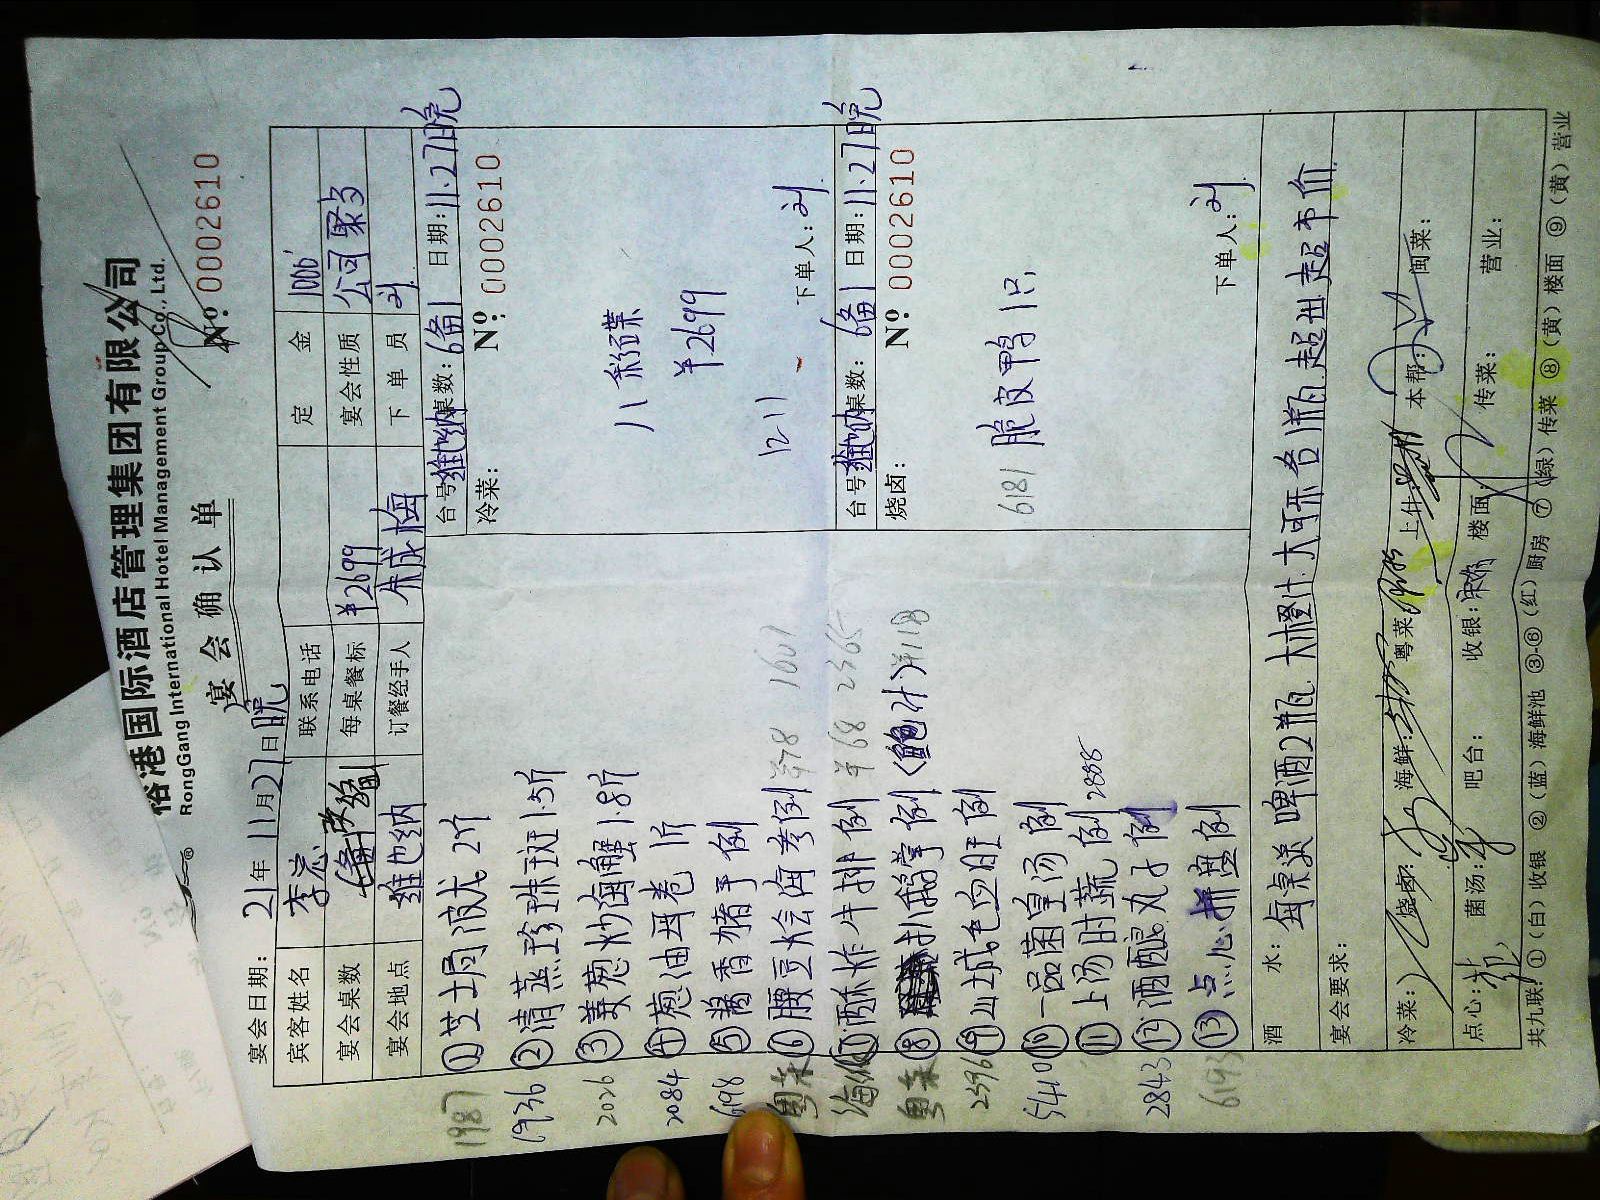 裕港国际酒店管理集团有限公司
RongGang International Hotel Management Group Co., Ltd.
宴会确认单
№: 0002610
宴会日期: 21年11月27日晚
宾客姓名 李总 联系电话 定金 1000
宴会桌数 每桌餐标 ¥2699 宴会性质 公司聚
宴会地点 维也纳 订餐经手人 朱成梅 下单员 刘
台号: 维也纳 桌数: 6备1 日期: 11.27日晚
冷菜:
№: 0002610
八彩碟
¥2699
1211
下单人: 刘
台号: 维也纳 桌数: 6备1 日期: 11.27日晚
烧卤:
№: 0002610
6181 脆皮鸭1只
下单人: 刘
1987 ①芝士焗波龙2斤
1936 ②清蒸珍珠斑1.5斤
2026 ③姜葱炒海蟹1.8斤
2084 ④葱油耳卷1斤
6198 ⑤酱香猪手例
粤菜 ⑥腰豆大会海参例 ¥78 1601
⑦酥炸牛排例 ¥68 2365
粤菜 ⑧扒鹅掌例(鲍汁)¥118
2396 ⑨山城毛血旺例
5410 ⑩一品菌皇汤例
⑪上汤时蔬例 2885
2843 ⑫酒酿丸子例
6193 ⑬点心拼盘例
酒水: 每桌送啤酒2瓶 大橙汁.大可乐各1瓶 超出超市价
宴会要求:
冷菜: 烧卤: 海鲜: 粤菜: 上什: 本帮: 闽菜:
点心: 菌汤: 吧台: 收银: 楼面: 传菜: 营业:
共九联: ①(白)收银 ②(蓝)海鲜池 ③-⑥(红)厨房 ⑦(绿)传菜 ⑧(黄)楼面 ⑨(黄)营业